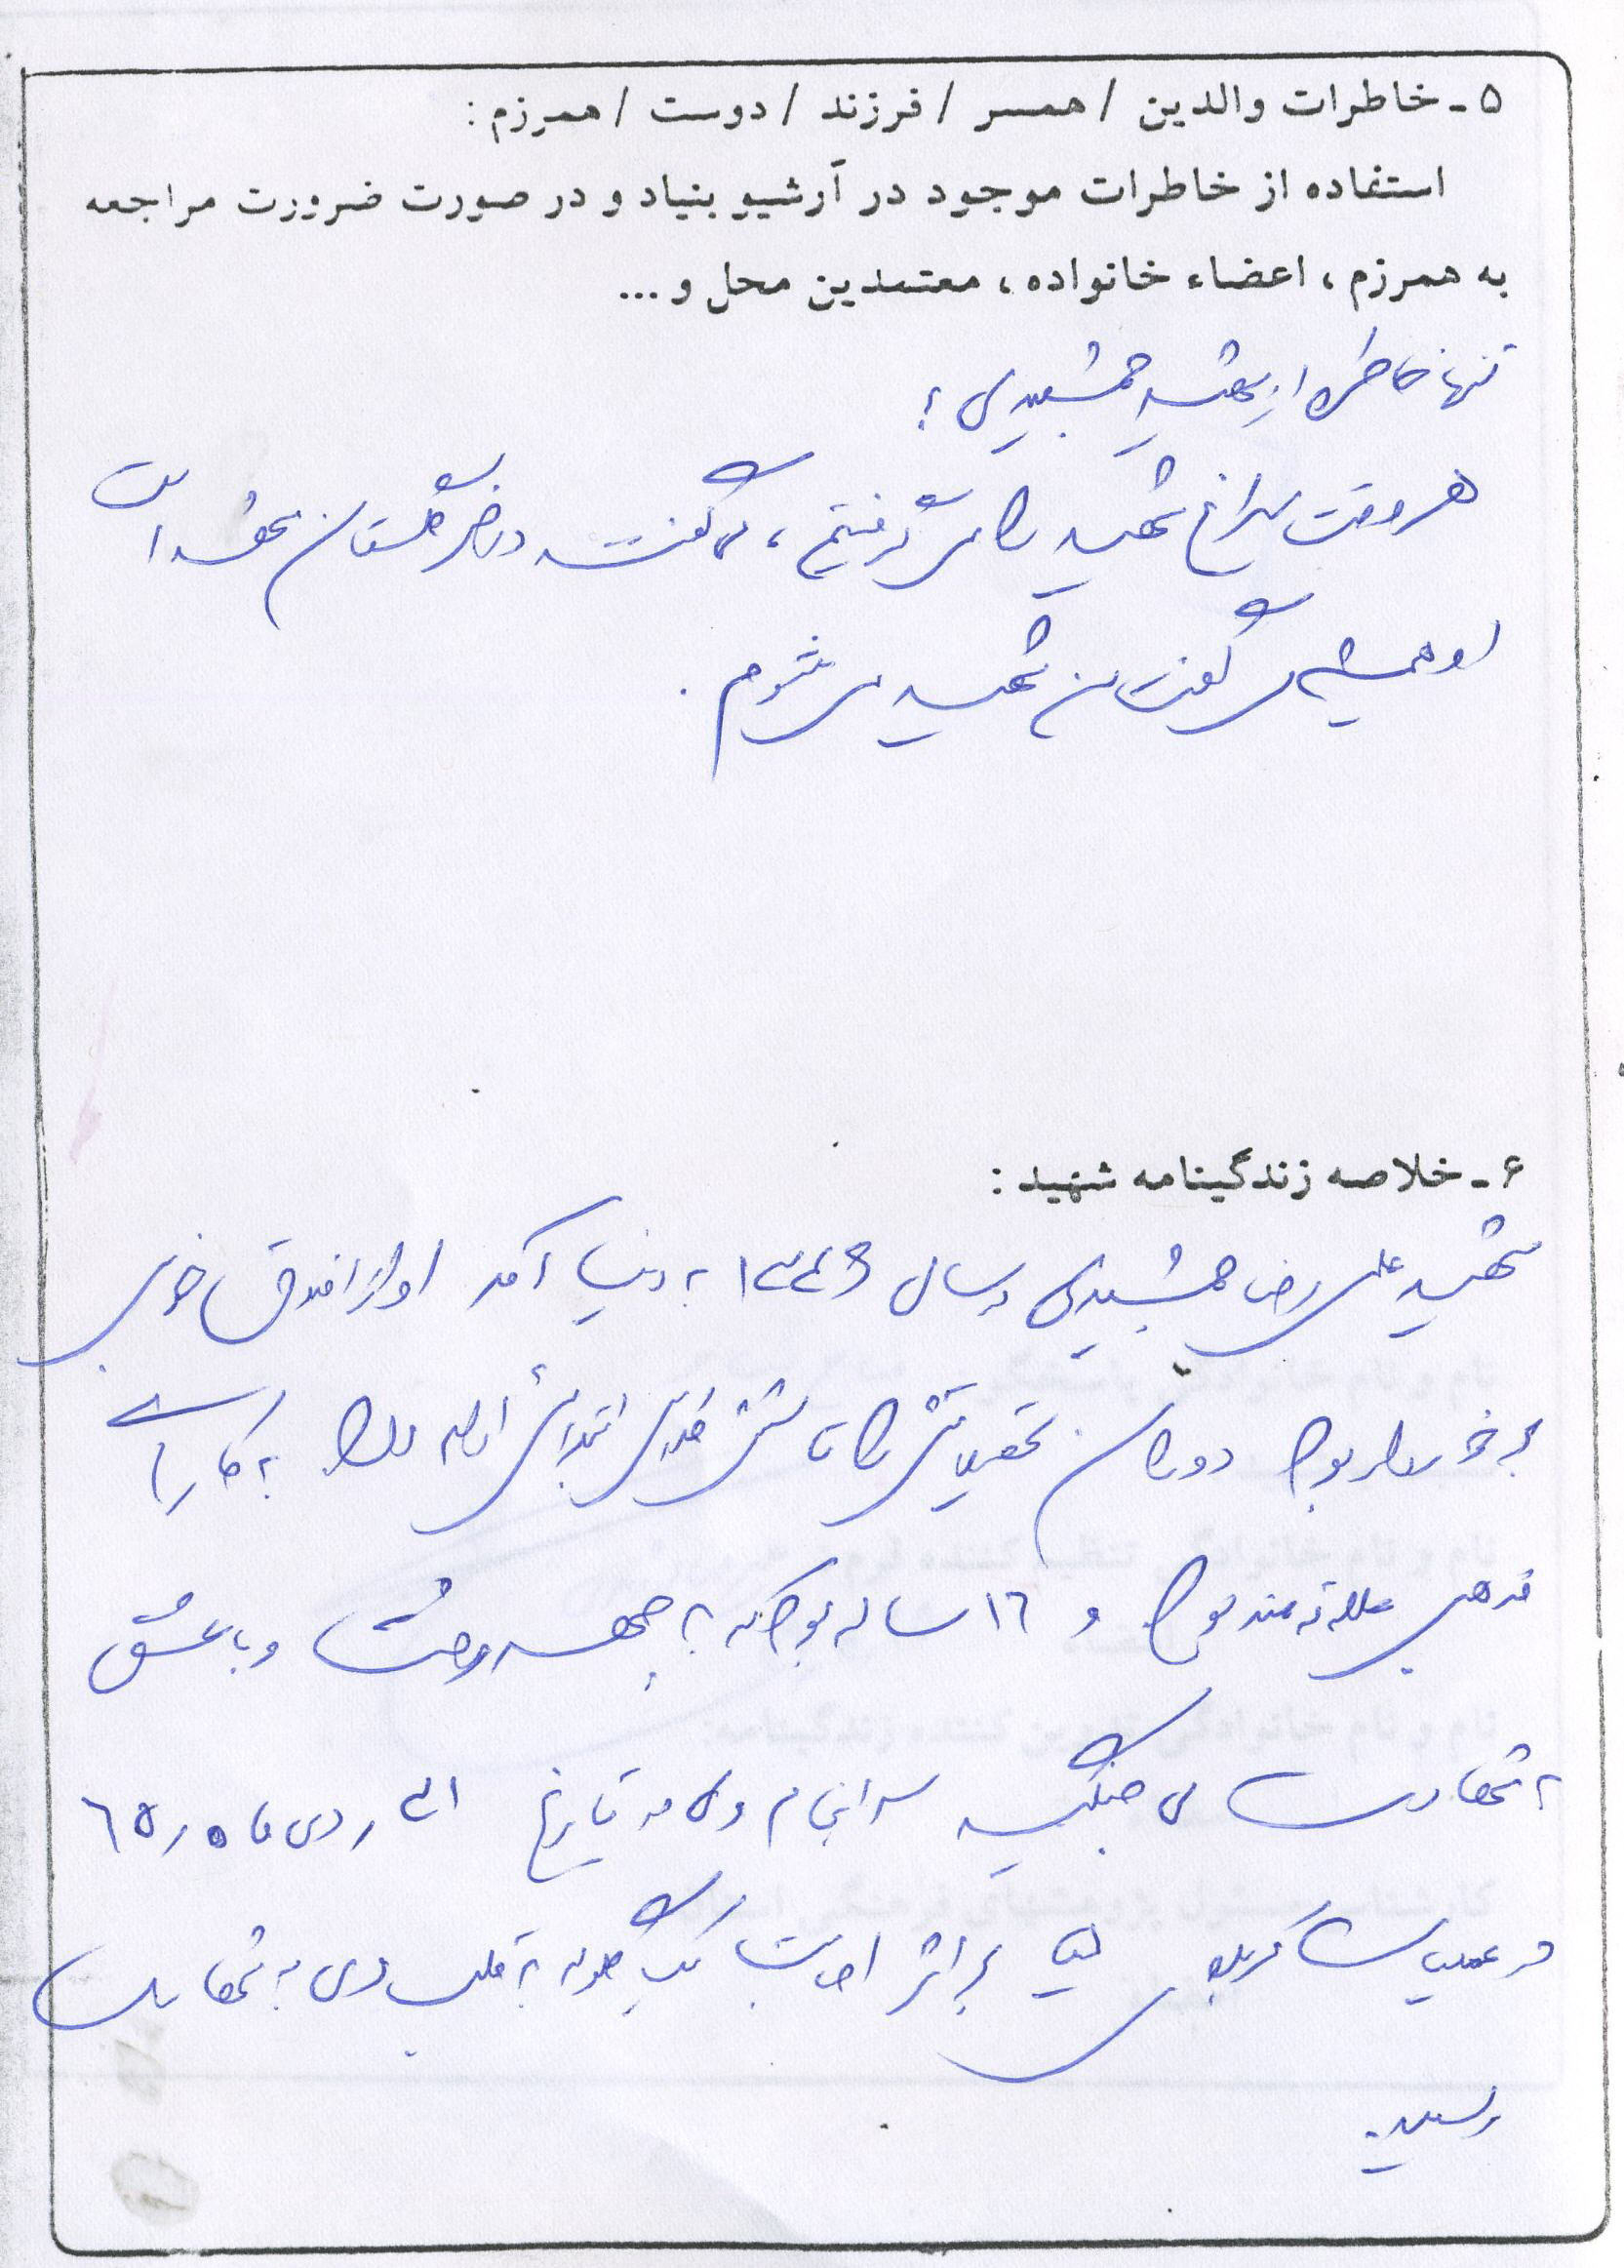 ۵ - خاطرات والدین / همسر / فرزند / دوست / همرزم :
استفاده از خاطرات موجود در آرشیو بنیاد و در صورت ضرورت مراجعه
به همرزم ، اعضاء خانواده ، معتمدین محل و ...
تنها خاطره از شهید جمشیدی :
هر وقت سراغ شهید را می گرفتیم ، می گفتند در
او همیشه می گفت من شهید می شوم .
۶ - خلاصه زندگینامه شهید :
شهید علی رضا جمشیدی در سال ۱۳۴۹ به دنیا آمد او از اخلاق خوبی
برخوردار بود دوران تحصیلاتش را تا شش ابتدایی ادامه داد به کارهای
مذهبی علاقه مند بود و ۱۶ ساله بود که به جبهه رفت و با عشق
به شهادت می جنگید سرانجام وی در تاریخ ۲۱ / دی ماه / ۶۵
در عملیات کربلای ۵ بر اثر اصابت یک گلوله به قلب وی به شهادت
رسید.